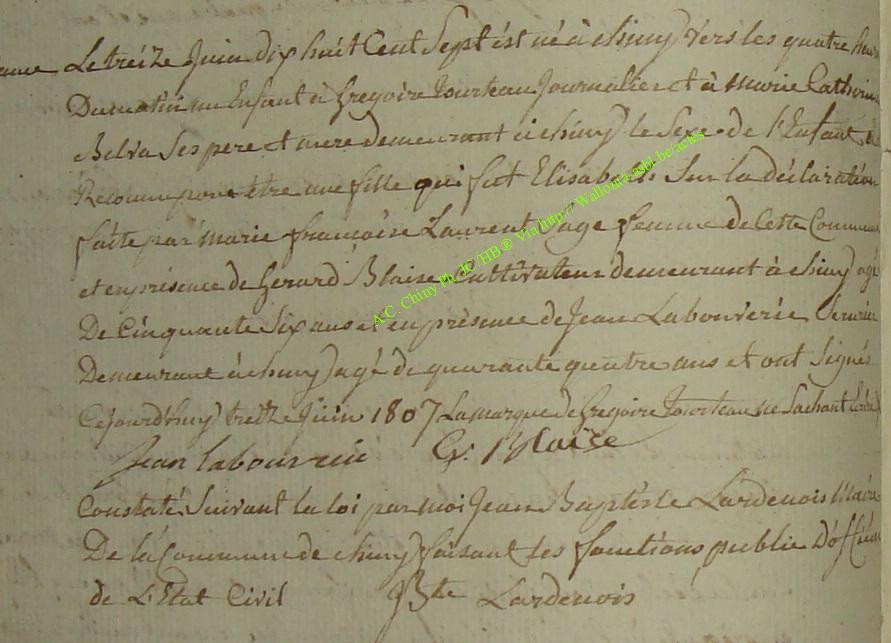 Le treize Juin dix huit Cent Sept est né à chiny vers les quatre heures
Du matin un Enfant à Gregoire Tourteau Journalier et à Marie Catherine
Belva Ses pere et mere demeurant à chiny le Sexe de l'Enfant a
Reconnu pour être une fille qui fut Elisabeth Sur la déclaration
faite par Marie françoise Laurent Sage femme de Cette Commune
et en présence de Gerard Blaise Cultivateur demeurant à chiny agé
De Cinquante Six ans et en présence de Jean Labouverie
Demeurant à chiny agé de quarante quatre ans et ont Signés
Cejourd'huy treize Juin 1807 La marque de Gregoire Tourteau ne Sachant Ecrire
Jean labouverie G. Blaise
Constaté Suivant la loi par moi Jean Baptiste Lardenois Maire
De la Commune de chiny faisant les fonctions public D'officier
de L'Etat Civil JBte Lardenois
A.C. Chiny Ph. JC HB® Via http://Wallonia.asbl.be/actes